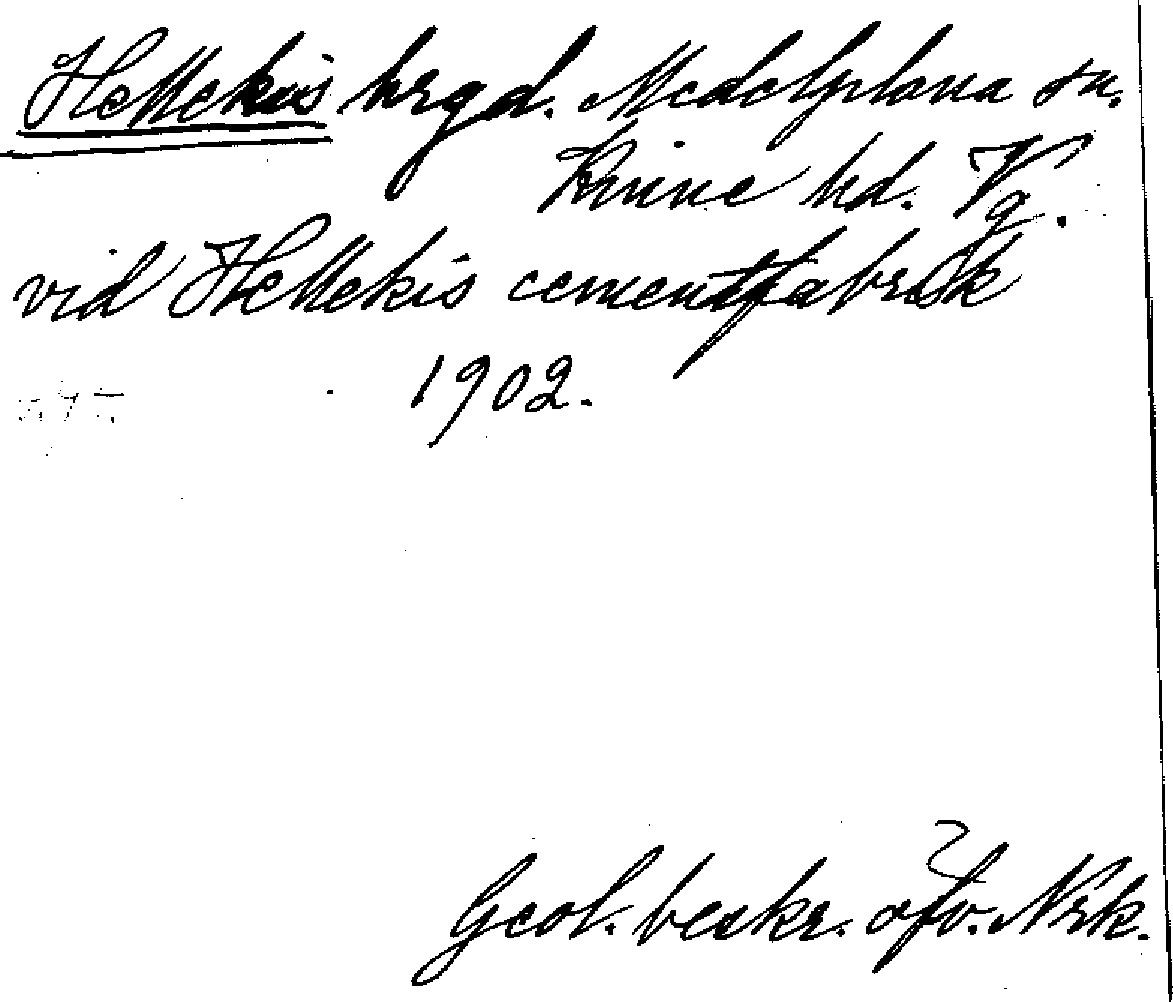 Hellekis hrgd. Medelplana sn.
Kinne hd. Vg.
vid Hellekis cementfabrik
1902.
Geol. beskr. öfv. Nrk.